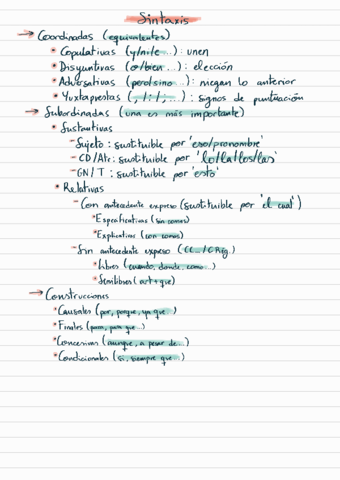 Sintaxis
→ Coordinadas (equivalentes)
• Copulativas (y/ni/e...): unen
• Disyuntivas (o/bien...): elección
• Adversativas (pero/sino...): niegan lo anterior
• Yuxtapuestas (, / : / ; ...): signos de puntuación
→ Subordinadas (una es más importante)
• Sustantivas
- Sujeto: sustituible por 'eso/pronombre'
- CD/Atr: sustituible por 'lo/la/los/las'
- GN/T: sustituible por 'esto'
• Relativas
- Con antecedente expreso (sustituible por 'el cual')
• Especificativas (sin comas)
• Explicativas (con comas)
- Sin antecedente expreso (CC.../CRég)
• Libres (cuando, donde, como...)
• Semilibres (art+que)
→ Construcciones
• Causales (por, porque, ya que...)
• Finales (para, para que...)
• Concesivas (aunque, a pesar de...)
• Condicionales (si, siempre que...)